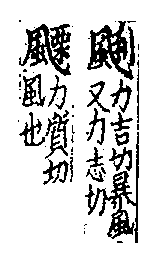 力吉切暴風
又力志切
䬆
力質切
風也